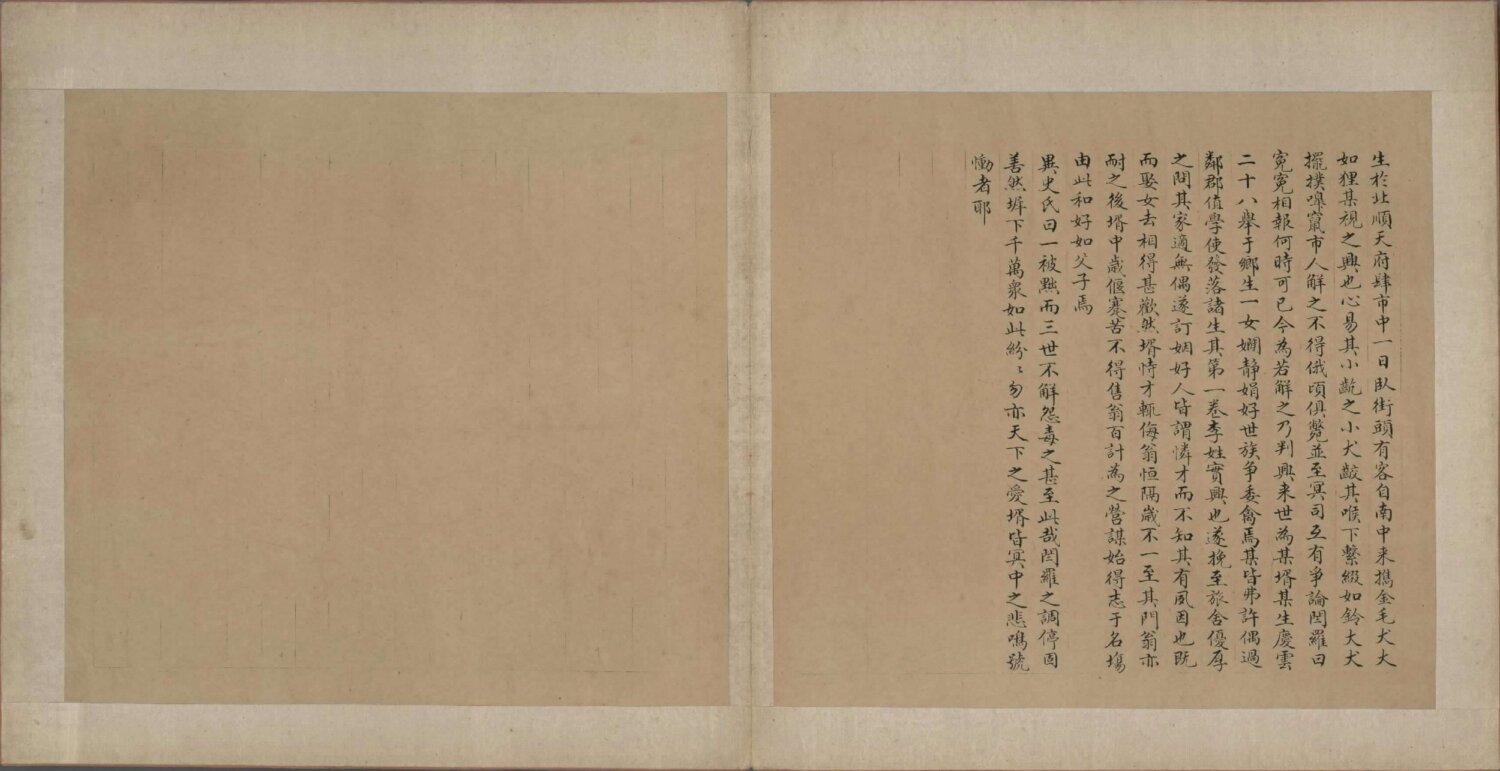 生於北順天府肆市中一日臥街頭有客自南中来擕金毛犬大
如狸某視之興也心易其小齕之小犬齩其喉下繫綴如鈴大犬
擺撲嘷竄市人解之不得俄頃俱斃並至冥司互有爭論閻羅曰
寃寃相報何時可已今為若解之乃判興来世為某壻某生慶雲
二十八舉于鄉生一女嫻靜娟好世族爭委禽焉某皆弗許偶過
鄰郡值學使發落諸生其第一卷李姓實興也遂挽至旅舍優厚
之問其家適無偶遂訂姻好人皆謂憐才而不知其有夙因也既
而娶女去相得甚歡然壻恃才輒侮翁恒隔歲不一至其門翁亦
耐之後壻中歲偃蹇苦不得售翁百計為之營謀始得志于名塲
由此和好如父子焉
異史氏曰一被黜而三世不解怨毒之甚至此哉閻羅之調停固
善然墀下千萬衆如此紛〻勿亦天下之愛壻皆冥中之悲鳴號
慟者耶